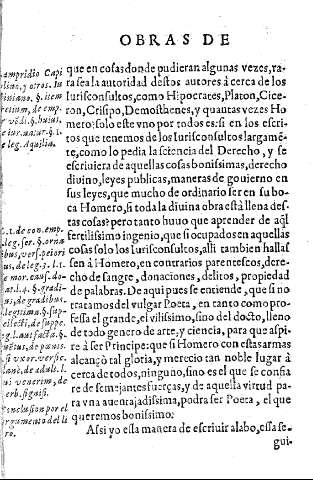 OBRAS DE
que en cosas donde pudieran algunas vezes, ra-
ta sea la autoridad destos autores à cerca de los
Iurisconsultos, como Hipocrates, Platon, Cice-
ron, Crisipo, Demosthenes, y quantas vezes Ho
mero: solo este vno por todos es: si en los escri-
tos que tenemos de los Iurisconsultos largamẽ-
te, como lo pedia la sciencia del Derecho, y se
escriuiera de aquellas cosas bonissimas, derecho
diuino, leyes publicas, maneras de gouierno en
sus leyes, que mucho de ordinario ser en su bo-
ca Homero, si toda la diuina obra està llena des-
tas cosas? pero tanto huuo que aprender de aq̃l
fertilissimo ingenio, que si ocupados en aquellas
cosas solo los Iurisconsultos, alli tambien hallas
sen à Homero, en contrarios parentescos, dere-
cho de sangre, donaciones, delitos, propiedad
de palabras. De aqui pues se entiende, que si no
tratamos del vulgar Poeta, en tanto como pro-
fessa el grande, el vilissimo, sino del docto, lleno
de todo genero de arte, y ciencia, para que aspi-
re à ser Principe: que si Homero con estas armas
alcançò tal gloria, y merecio tan noble lugar à
cerca de todos, ninguno, sino es el que se confia
re de semejantes fuerças, y de aquella virtud pa-
ra vna auentajadissima, podra ser Poeta, el que
queremos bonissimo.
Assi yo esta manera de escriuir alabo, essa se
gui-
ampridio Capi
tolino, y otros. In
§. item
pretium, de emp.
§. huius,
eiur. natur. §. 1.
e leg. Aquilia.
C. t. de con. emp.
leg. ser. §. orna
tibus, ver.
riori-
us, de leg. 3. l. 1.
e mor. caus. do-
at. l. 4. §. gradi-
us, de gradibus.
legitima. §. sup-
ellecti, de suppe.
g. l. aut facta. §.
de pœnis.
si vxor.
lane. de adult. l.
vi venerim, de
erb. signifi.
onclusion por el
argumento del li
ro.